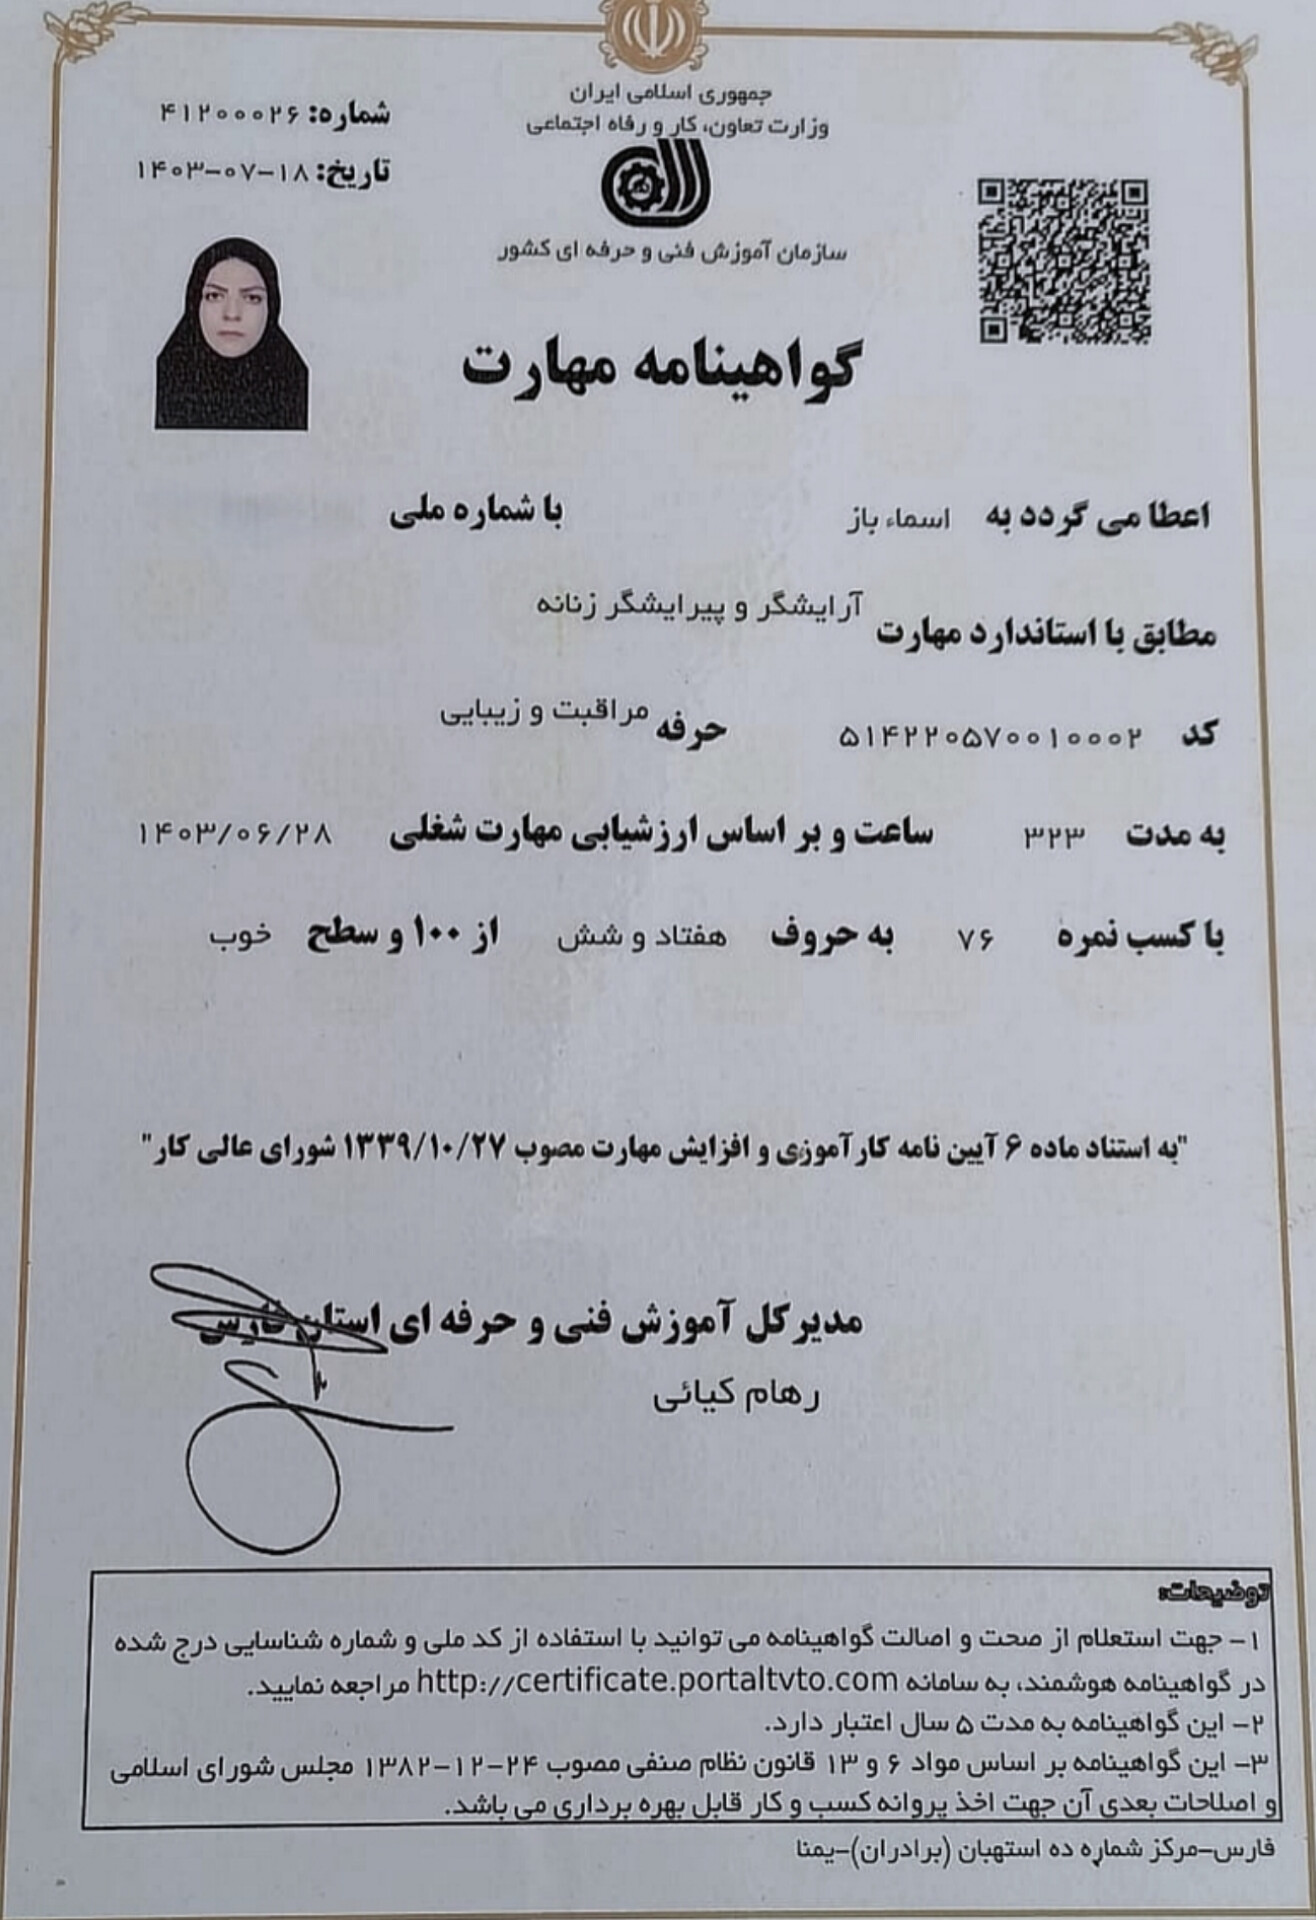 جمهوری اسلامی ایران
وزارت تعاون، کار و رفاه اجتماعی
سازمان آموزش فنی و حرفه ای کشور
شماره: ۴۱۲۰۰۰۲۶
تاریخ: ۱۴۰۳-۰۷-۱۸
گواهینامه مهارت
اعطا می گردد به اسماء باز با شماره ملی
مطابق با استاندارد مهارت آرایشگر و پیرایشگر زنانه
کد ۵۱۴۲۲۰۵۷۰۰۱۰۰۰۲ حرفه مراقبت و زیبایی
به مدت ۳۲۳ ساعت و بر اساس ارزشیابی مهارت شغلی ۱۴۰۳/۰۶/۲۸
با کسب نمره ۷۶ به حروف هفتاد و شش از ۱۰۰ و سطح خوب
"به استناد ماده ۶ آیین نامه کارآموزی و افزایش مهارت مصوب ۱۳۳۹/۱۰/۲۷ شورای عالی کار"
مدیرکل آموزش فنی و حرفه ای استان فارس
رهام کیائی
توضیحات:
۱- جهت استعلام از صحت و اصالت گواهینامه می توانید با استفاده از کد ملی و شماره شناسایی درج شده
در گواهینامه هوشمند، به سامانه http://certificate.portaltvto.com مراجعه نمایید.
۲- این گواهینامه به مدت ۵ سال اعتبار دارد.
۳- این گواهینامه بر اساس مواد ۶ و ۱۳ قانون نظام صنفی مصوب ۲۴-۱۲-۱۳۸۲ مجلس شورای اسلامی
و اصلاحات بعدی آن جهت اخذ پروانه کسب و کار قابل بهره برداری می باشد.
فارس-مرکز شماره ده استهبان (برادران)-یمنا